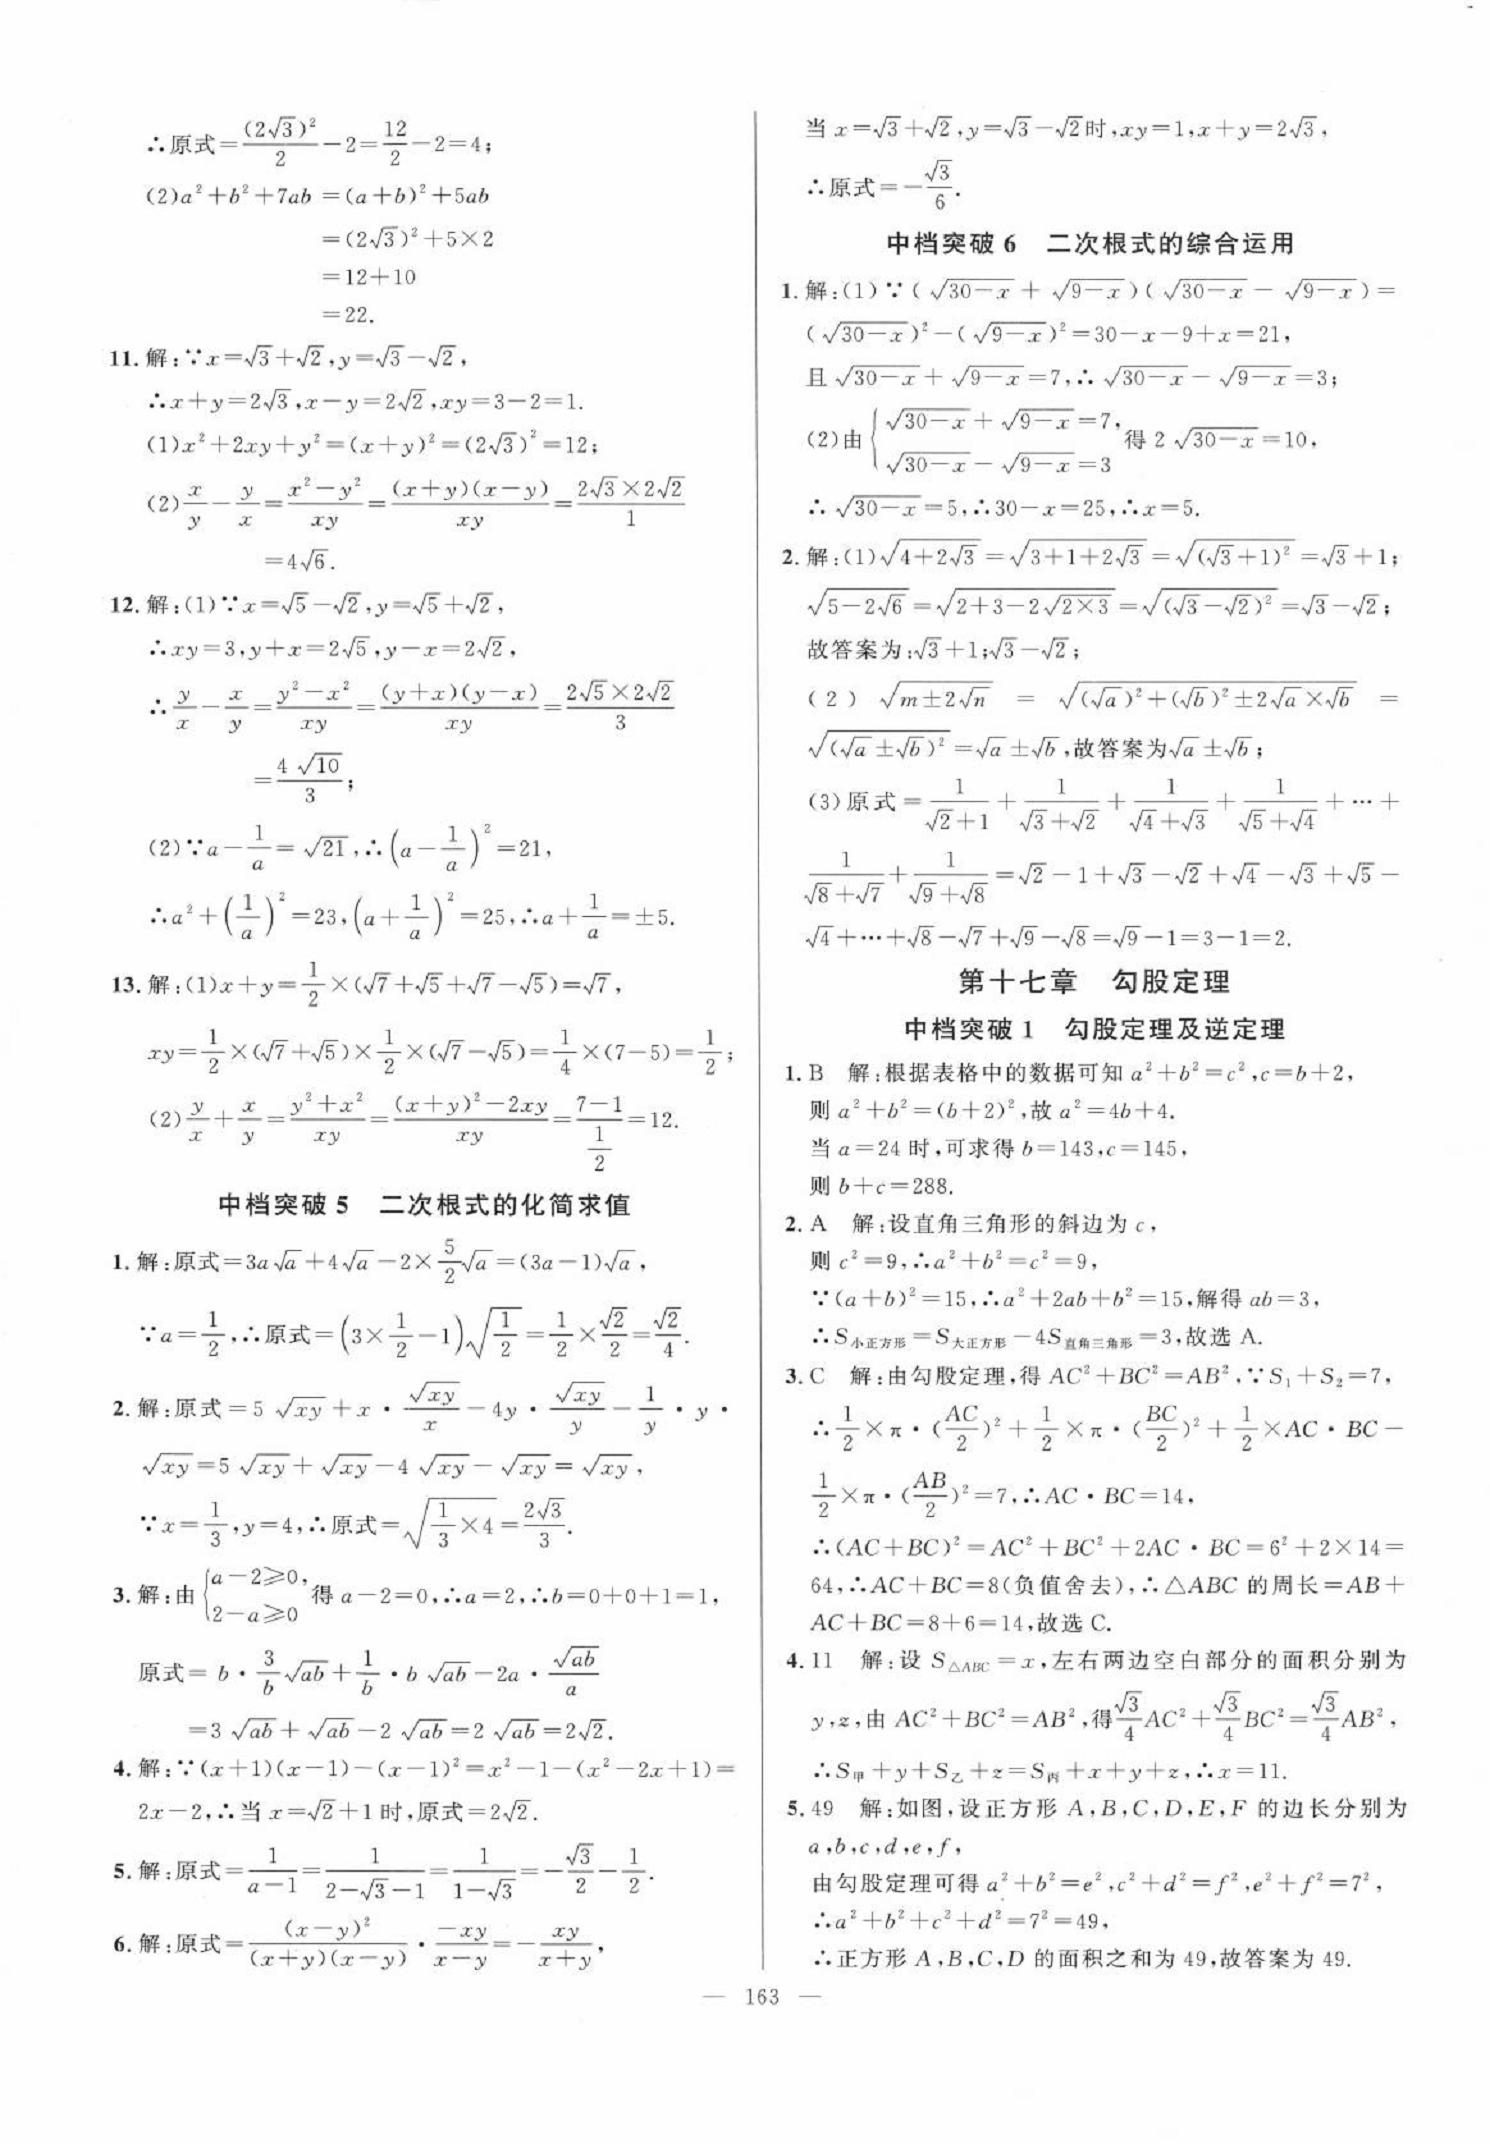 ∴原式=$\frac{(2\sqrt{3})^2}{2}$-2=$\frac{12}{2}$-2=4;
(2)$a^2+b^2+7ab$ =$(a+b)^2+5ab$
=$(2\sqrt{3})^2+5×2$
=12+10
=22.
11.解:∵$x=\sqrt{3}+\sqrt{2}$,$y=\sqrt{3}-\sqrt{2}$,
∴$x+y=2\sqrt{3}$,$x-y=2\sqrt{2}$,$xy=3-2=1$.
(1)$x^2+2xy+y^2=(x+y)^2=(2\sqrt{3})^2=12$;
(2)$\frac{x}{y}-\frac{y}{x}=\frac{x^2-y^2}{xy}=\frac{(x+y)(x-y)}{xy}=\frac{2\sqrt{3}×2\sqrt{2}}{1}$
=$4\sqrt{6}$.
12.解:(1)∵$x=\sqrt{5}-\sqrt{2}$,$y=\sqrt{5}+\sqrt{2}$,
∴$xy=3$,$y+x=2\sqrt{5}$,$y-x=2\sqrt{2}$,
∴$\frac{y}{x}-\frac{x}{y}=\frac{y^2-x^2}{xy}=\frac{(y+x)(y-x)}{xy}=\frac{2\sqrt{5}×2\sqrt{2}}{3}$
=$\frac{4\sqrt{10}}{3}$;
(2)∵$a-\frac{1}{a}=\sqrt{21}$,∴$(a-\frac{1}{a})^2=21$,
∴$a^2+(\frac{1}{a})^2=23$,$(a+\frac{1}{a})^2=25$,∴$a+\frac{1}{a}=±5$.
13.解:(1)$x+y=\frac{1}{2}×(\sqrt{7}+\sqrt{5}+\sqrt{7}-\sqrt{5})=\sqrt{7}$,
$xy=\frac{1}{2}×(\sqrt{7}+\sqrt{5})×\frac{1}{2}×(\sqrt{7}-\sqrt{5})=\frac{1}{4}×(7-5)=\frac{1}{2}$;
(2)$\frac{y}{x}+\frac{x}{y}=\frac{y^2+x^2}{xy}=\frac{(x+y)^2-2xy}{xy}=\frac{7-1}{\frac{1}{2}}=12$.
中档突破 5 二次根式的化简求值
1.解:原式=$3a\sqrt{a}+4\sqrt{a}-2×\frac{5}{2}\sqrt{a}=(3a-1)\sqrt{a}$,
∵$a=\frac{1}{2}$,∴原式=$(3×\frac{1}{2}-1)\sqrt{\frac{1}{2}}=\frac{1}{2}×\frac{\sqrt{2}}{2}=\frac{\sqrt{2}}{4}$.
2.解:原式=$5\sqrt{xy}+x·\frac{\sqrt{xy}}{x}-4y·\frac{\sqrt{xy}}{y}-\frac{1}{y}·y·$
$\sqrt{xy}=5\sqrt{xy}+\sqrt{xy}-4\sqrt{xy}-\sqrt{xy}=\sqrt{xy}$,
∵$x=\frac{1}{3}$,$y=4$,∴原式=$\sqrt{\frac{1}{3}×4}=\frac{2\sqrt{3}}{3}$.
3.解:由$\begin{cases}a-2≥0,\\2-a≥0\end{cases}$得$a-2=0$,∴$a=2$,∴$b=0+0+1=1$,
原式=$b·\frac{3}{b}\sqrt{ab}+\frac{1}{b}·b\sqrt{ab}-2a·\frac{\sqrt{ab}}{a}$
=$3\sqrt{ab}+\sqrt{ab}-2\sqrt{ab}=2\sqrt{ab}=2\sqrt{2}$.
4.解:∵$(x+1)(x-1)-(x-1)^2=x^2-1-(x^2-2x+1)=$
$2x-2$,∴当$x=\sqrt{2}+1$时,原式=$2\sqrt{2}$.
5.解:原式=$\frac{1}{a-1}=\frac{1}{2-\sqrt{3}-1}=\frac{1}{1-\sqrt{3}}=-\frac{\sqrt{3}}{2}-\frac{1}{2}$.
6.解:原式=$\frac{(x-y)^2}{(x+y)(x-y)}·\frac{-xy}{x-y}=-\frac{xy}{x+y}$,
当$x=\sqrt{3}+\sqrt{2}$,$y=\sqrt{3}-\sqrt{2}$时,$xy=1$,$x+y=2\sqrt{3}$,
∴原式=$-\frac{\sqrt{3}}{6}$.
中档突破 6 二次根式的综合运用
1.解:(1)∵$(\sqrt{30-x}+\sqrt{9-x})(\sqrt{30-x}-\sqrt{9-x})=$
$(\sqrt{30-x})^2-(\sqrt{9-x})^2=30-x-9+x=21$,
且$\sqrt{30-x}+\sqrt{9-x}=7$,∴$\sqrt{30-x}-\sqrt{9-x}=3$;
(2)由$\begin{cases}\sqrt{30-x}+\sqrt{9-x}=7,\\\sqrt{30-x}-\sqrt{9-x}=3\end{cases}$得$2\sqrt{30-x}=10$,
∴$\sqrt{30-x}=5$,∴$30-x=25$,∴$x=5$.
2.解:(1)$\sqrt{4+2\sqrt{3}}=\sqrt{3+1+2\sqrt{3}}=\sqrt{(\sqrt{3}+1)^2}=\sqrt{3}+1$;
$\sqrt{5-2\sqrt{6}}=\sqrt{2+3-2\sqrt{2×3}}=\sqrt{(\sqrt{3}-\sqrt{2})^2}=\sqrt{3}-\sqrt{2}$;
故答案为:$\sqrt{3}+1$;$\sqrt{3}-\sqrt{2}$;
(2)$\sqrt{m±2\sqrt{n}}=\sqrt{(\sqrt{a})^2+(\sqrt{b})^2±2\sqrt{a}×\sqrt{b}}=$
$\sqrt{(\sqrt{a}±\sqrt{b})^2}=\sqrt{a}±\sqrt{b}$,故答案为$\sqrt{a}±\sqrt{b}$;
(3)原式=$\frac{1}{\sqrt{2}+1}+\frac{1}{\sqrt{3}+\sqrt{2}}+\frac{1}{\sqrt{4}+\sqrt{3}}+\frac{1}{\sqrt{5}+\sqrt{4}}+…+$
$\frac{1}{\sqrt{8}+\sqrt{7}}+\frac{1}{\sqrt{9}+\sqrt{8}}=\sqrt{2}-1+\sqrt{3}-\sqrt{2}+\sqrt{4}-\sqrt{3}+\sqrt{5}-$
$\sqrt{4}+…+\sqrt{8}-\sqrt{7}+\sqrt{9}-\sqrt{8}=\sqrt{9}-1=3-1=2$.
第十七章 勾股定理
中档突破 1 勾股定理及逆定理
1.B 解:根据表格中的数据可知$a^2+b^2=c^2$,$c=b+2$,
则$a^2+b^2=(b+2)^2$,故$a^2=4b+4$.
当$a=24$时,可求得$b=143$,$c=145$,
则$b+c=288$.
2.A 解:设直角三角形的斜边为$c$,
则$c^2=9$,∴$a^2+b^2=c^2=9$,
∵$(a+b)^2=15$,∴$a^2+2ab+b^2=15$,解得$ab=3$,
∴$S_{小正方形}=S_{大正方形}-4S_{直角三角形}=3$,故选 A.
3.C 解:由勾股定理,得$AC^2+BC^2=AB^2$,∵$S_1+S_2=7$,
∴$\frac{1}{2}×π·(\frac{AC}{2})^2+\frac{1}{2}×π·(\frac{BC}{2})^2+\frac{1}{2}×AC·BC-$
$\frac{1}{2}×π·(\frac{AB}{2})^2=7$,∴$AC·BC=14$,
∴$(AC+BC)^2=AC^2+BC^2+2AC·BC=6^2+2×14=$
64,∴$AC+BC=8$(负值舍去),∴△ABC 的周长=AB+
AC+BC=8+6=14,故选 C.
4.11 解:设$S_{△ABC}=x$,左右两边空白部分的面积分别为
$y,z$,由$AC^2+BC^2=AB^2$,得$\frac{\sqrt{3}}{4}AC^2+\frac{\sqrt{3}}{4}BC^2=\frac{\sqrt{3}}{4}AB^2$,
∴$S_甲+y+S_乙+z=S_丙+x+y+z$,∴$x=11$.
5.49 解:如图,设正方形 A,B,C,D,E,F 的边长分别为
$a,b,c,d,e,f$,
由勾股定理可得$a^2+b^2=e^2$,$c^2+d^2=f^2$,$e^2+f^2=7^2$,
∴$a^2+b^2+c^2+d^2=7^2=49$,
∴正方形 A,B,C,D 的面积之和为 49,故答案为 49.
— 163 —